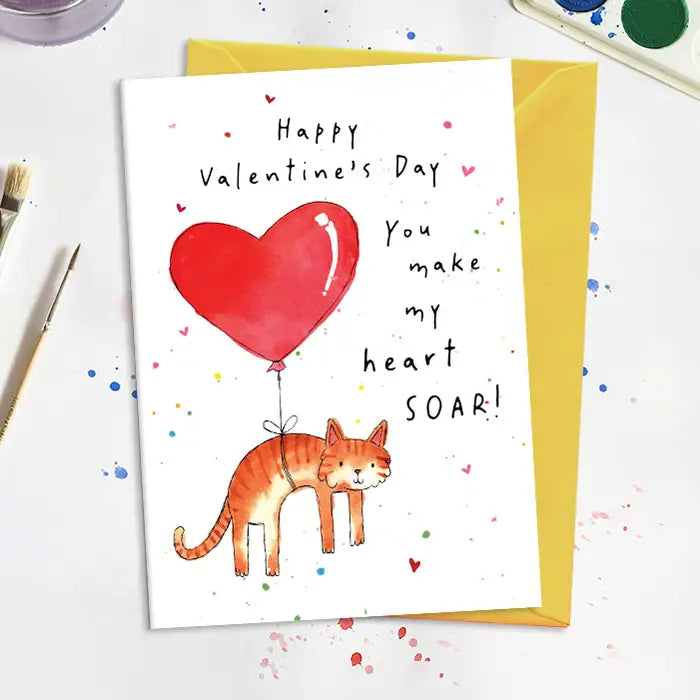 Happy
Valentine's Day
You
make
my
heart
SOAR!